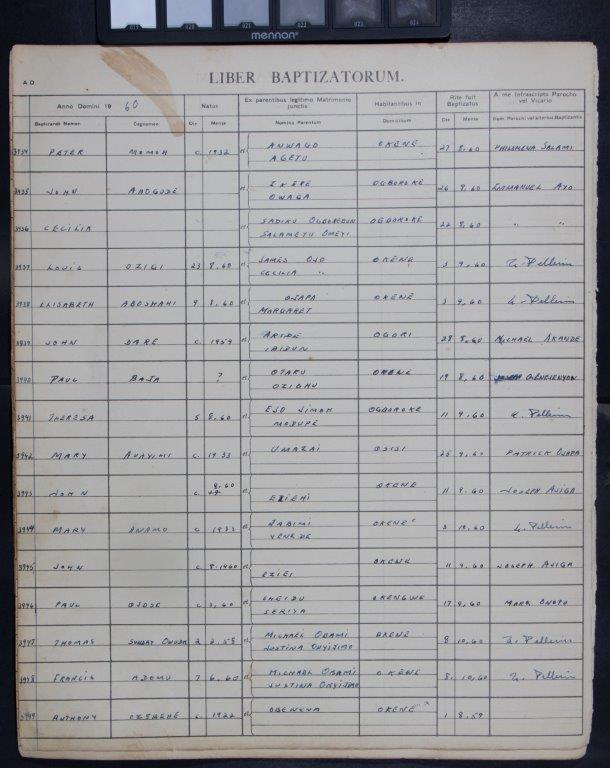 019 020 021 022 023 024
mennon
LIBER BAPTIZATORUM.
A.D.
Anno Domini 19 60 Natus Ex parentibus legitimo Matrimonio junctis Habitantibus in Rite fuit Baptizatus A me infrascripto Parocho vel Vicario
Baptizandi Nomen Cognomen Die Mense Nomina Parentum Domicilium Die Mense Nom. Parochi vel alterius Baptizantis
3934 PETER MOMOH c. 1932 et ANWAGO OKENE 27 8.60 PHILOMENA SALAMI
AGETU
3935 JOHN et OGBOROKE 26 8.60 EMMANUEL AYO
OWAGA
3936 CECILIA et SADIKU OGBOROKE 22 8.60 " "
SALAMETU OMEYI
3937 LOUIS OZIGI 23 8.60 et JAMES OJO OKENE 3 9.60 Pellerin
CECILIA "
3938 ELISABETH ABOSHAHI 9 8.60 et OJAPA OKENE 3 9.60 Pellerin
MARGARET
3939 JOHN DARE c. 1959 et OGORI 28 8.60 MICHAEL AKANDE
IBIDUN
3940 PAUL BAJA ? et OTARU OKENE 19 8.60
OZIOHU
3941 THERESA 5 8.60 et EJO JIMOH OGBOROKE 11 9.60 Pellerin
MODUPE
3942 MARY c. 1933 et UMAZAI 25 9.60 PATRICK OJAPA
3943 JOHN c. 8.60 et OKENE 11 9.60 JOSEPH AJIGA
EZIEHI
3944 MARY ANAMO c 1933 et OKENE 3 10.60 Pellerin
YENEDE
3945 JOHN c. 8.1960 et OKENE 11 9.60 JOSEPH AJIGA
EZIEI
3946 PAUL OJOSE c 3.60 et OKENGWE 17 9.60 MARK ONOTU
SERIYA
3947 THOMAS SUNDAY 2 2.58 et MICHAEL OBAMI OKENE 8 10.60 Pellerin
JUSTINA ONYIJIMO
3948 FRANCIS ADOMU 7 6.60 et MICHAEL OBAMI OKENE 8 10.60 Pellerin
JUSTINA ONYIJIMO
3949 ANTHONY c. 1922 et OKENE 1 8.59